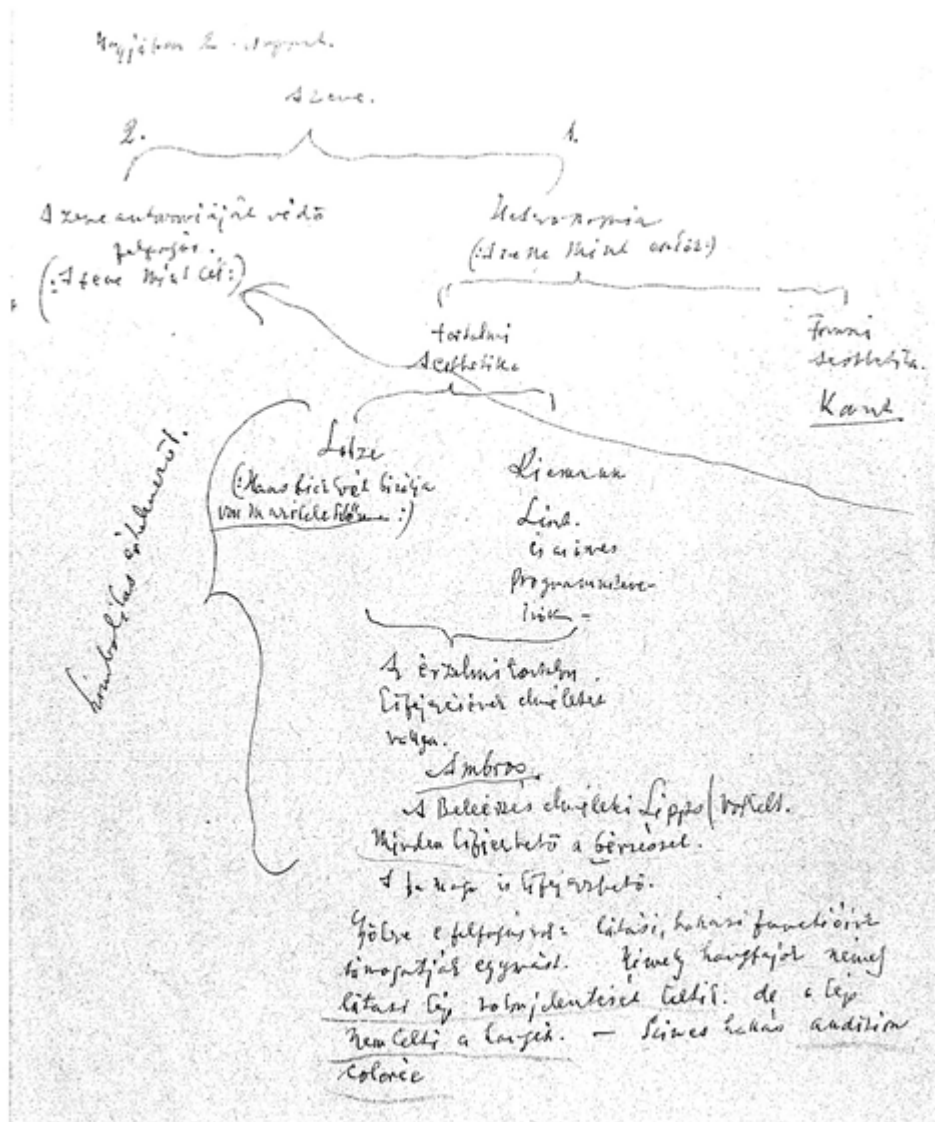 Nagyjában 2 csoport.
A zene.
2. 1.
A zene autonomiáját védő
felfogás.
(: A zene mint cél :)
Heteronomia
(: A zene mint eszköz :)
tartalmi
Aesthetika
Formai
aesthetika.
Kant
Lotze
(: Hanslick
Riemann
Liszt.
és az összes
Programmzene-
Az érzelmi tartalom
kifejezésének elméletét
vallja.
Ambros.
A Beleérzés elméleti Lipps / Volkelt.
Minden kifejezhető a
A fa maga is kifejezhető.
e felfogásról: látási, hallási functióink
támogatják egymást. Némely hangfajok némely
látási kép keltik. de a kép
nem kelti a hangét. — Szines hallás audition
colorée